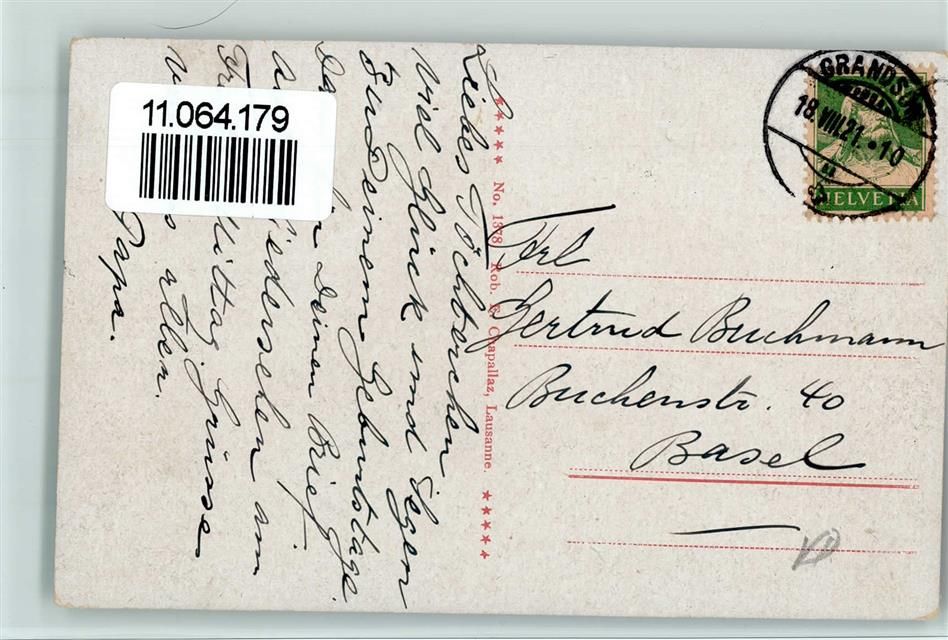 11.064.179
Liebes Töchterchen
Viel Glück und Segen
zu Deinem Geburtstage.
Dan für Deinen Brief.
Auf Wiedersehen am
Mittag. Grüsse
Allen.
Papa.
No. 1378 Rob. E. Chapallaz, Lausanne.
GRANDSON
18.VIII.21.·10
HELVETIA
Frl
Gertrud Buchmann
Buchenstr. 40
Basel